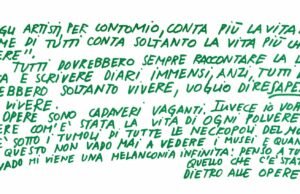 GLI ARTISTI, PER CONTO MIO, CONTA PIÙ LA VITA
ME DI TUTTI CONTA SOLTANTO LA VITA PIÙ CH
TUTTI DOVREBBERO SEMPRE RACCONTARE LA L
TA E SCRIVERE DIARI IMMENSI, ANZI, TUTTI
EBBERO SOLTANTO VIVERE, VOGLIO DIRE SAPE
VIVERE.
OPERE SONO CADAVERI VAGANTI. INVECE IO VOR
COM'È STATA LA VITA DI OGNI POLVERE
SOTTO I TUMOLI DI TUTTE LE NECROPOLI DEL M
QUESTO NON VADO MAI A VEDERE I MUSEI E QUAN
VADO MI VIENE UNA MELANCONIA INFINITA: PENSO A T
QUELLO CHE C'È STAT
DIETRO ALLE OPERE